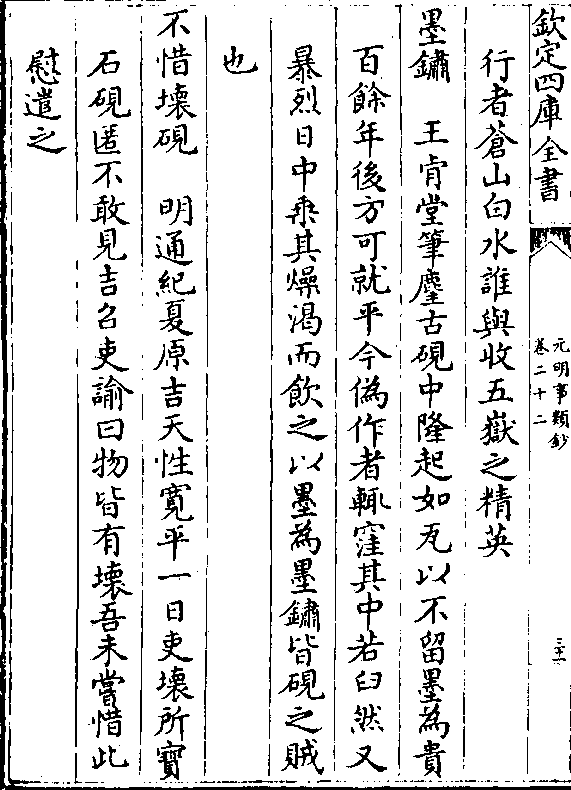 欽定四庫全書
元明事類鈔
卷二十二
三十一
行者蒼山白水誰與收五嶽之精英
墨鏽　王肯堂筆麈古硯中隆起如瓦以不留墨為貴
百餘年後方可就平今偽作者輒窪其中若臼然又
暴烈日中乘其燥渴而飲之以墨為墨鏽皆硯之賊
也
不惜壞硯　明通紀夏原吉天性寛平一日吏壞所寳
石硯匿不敢見吉召吏諭曰物皆有壞吾未嘗惜此
慰遣之